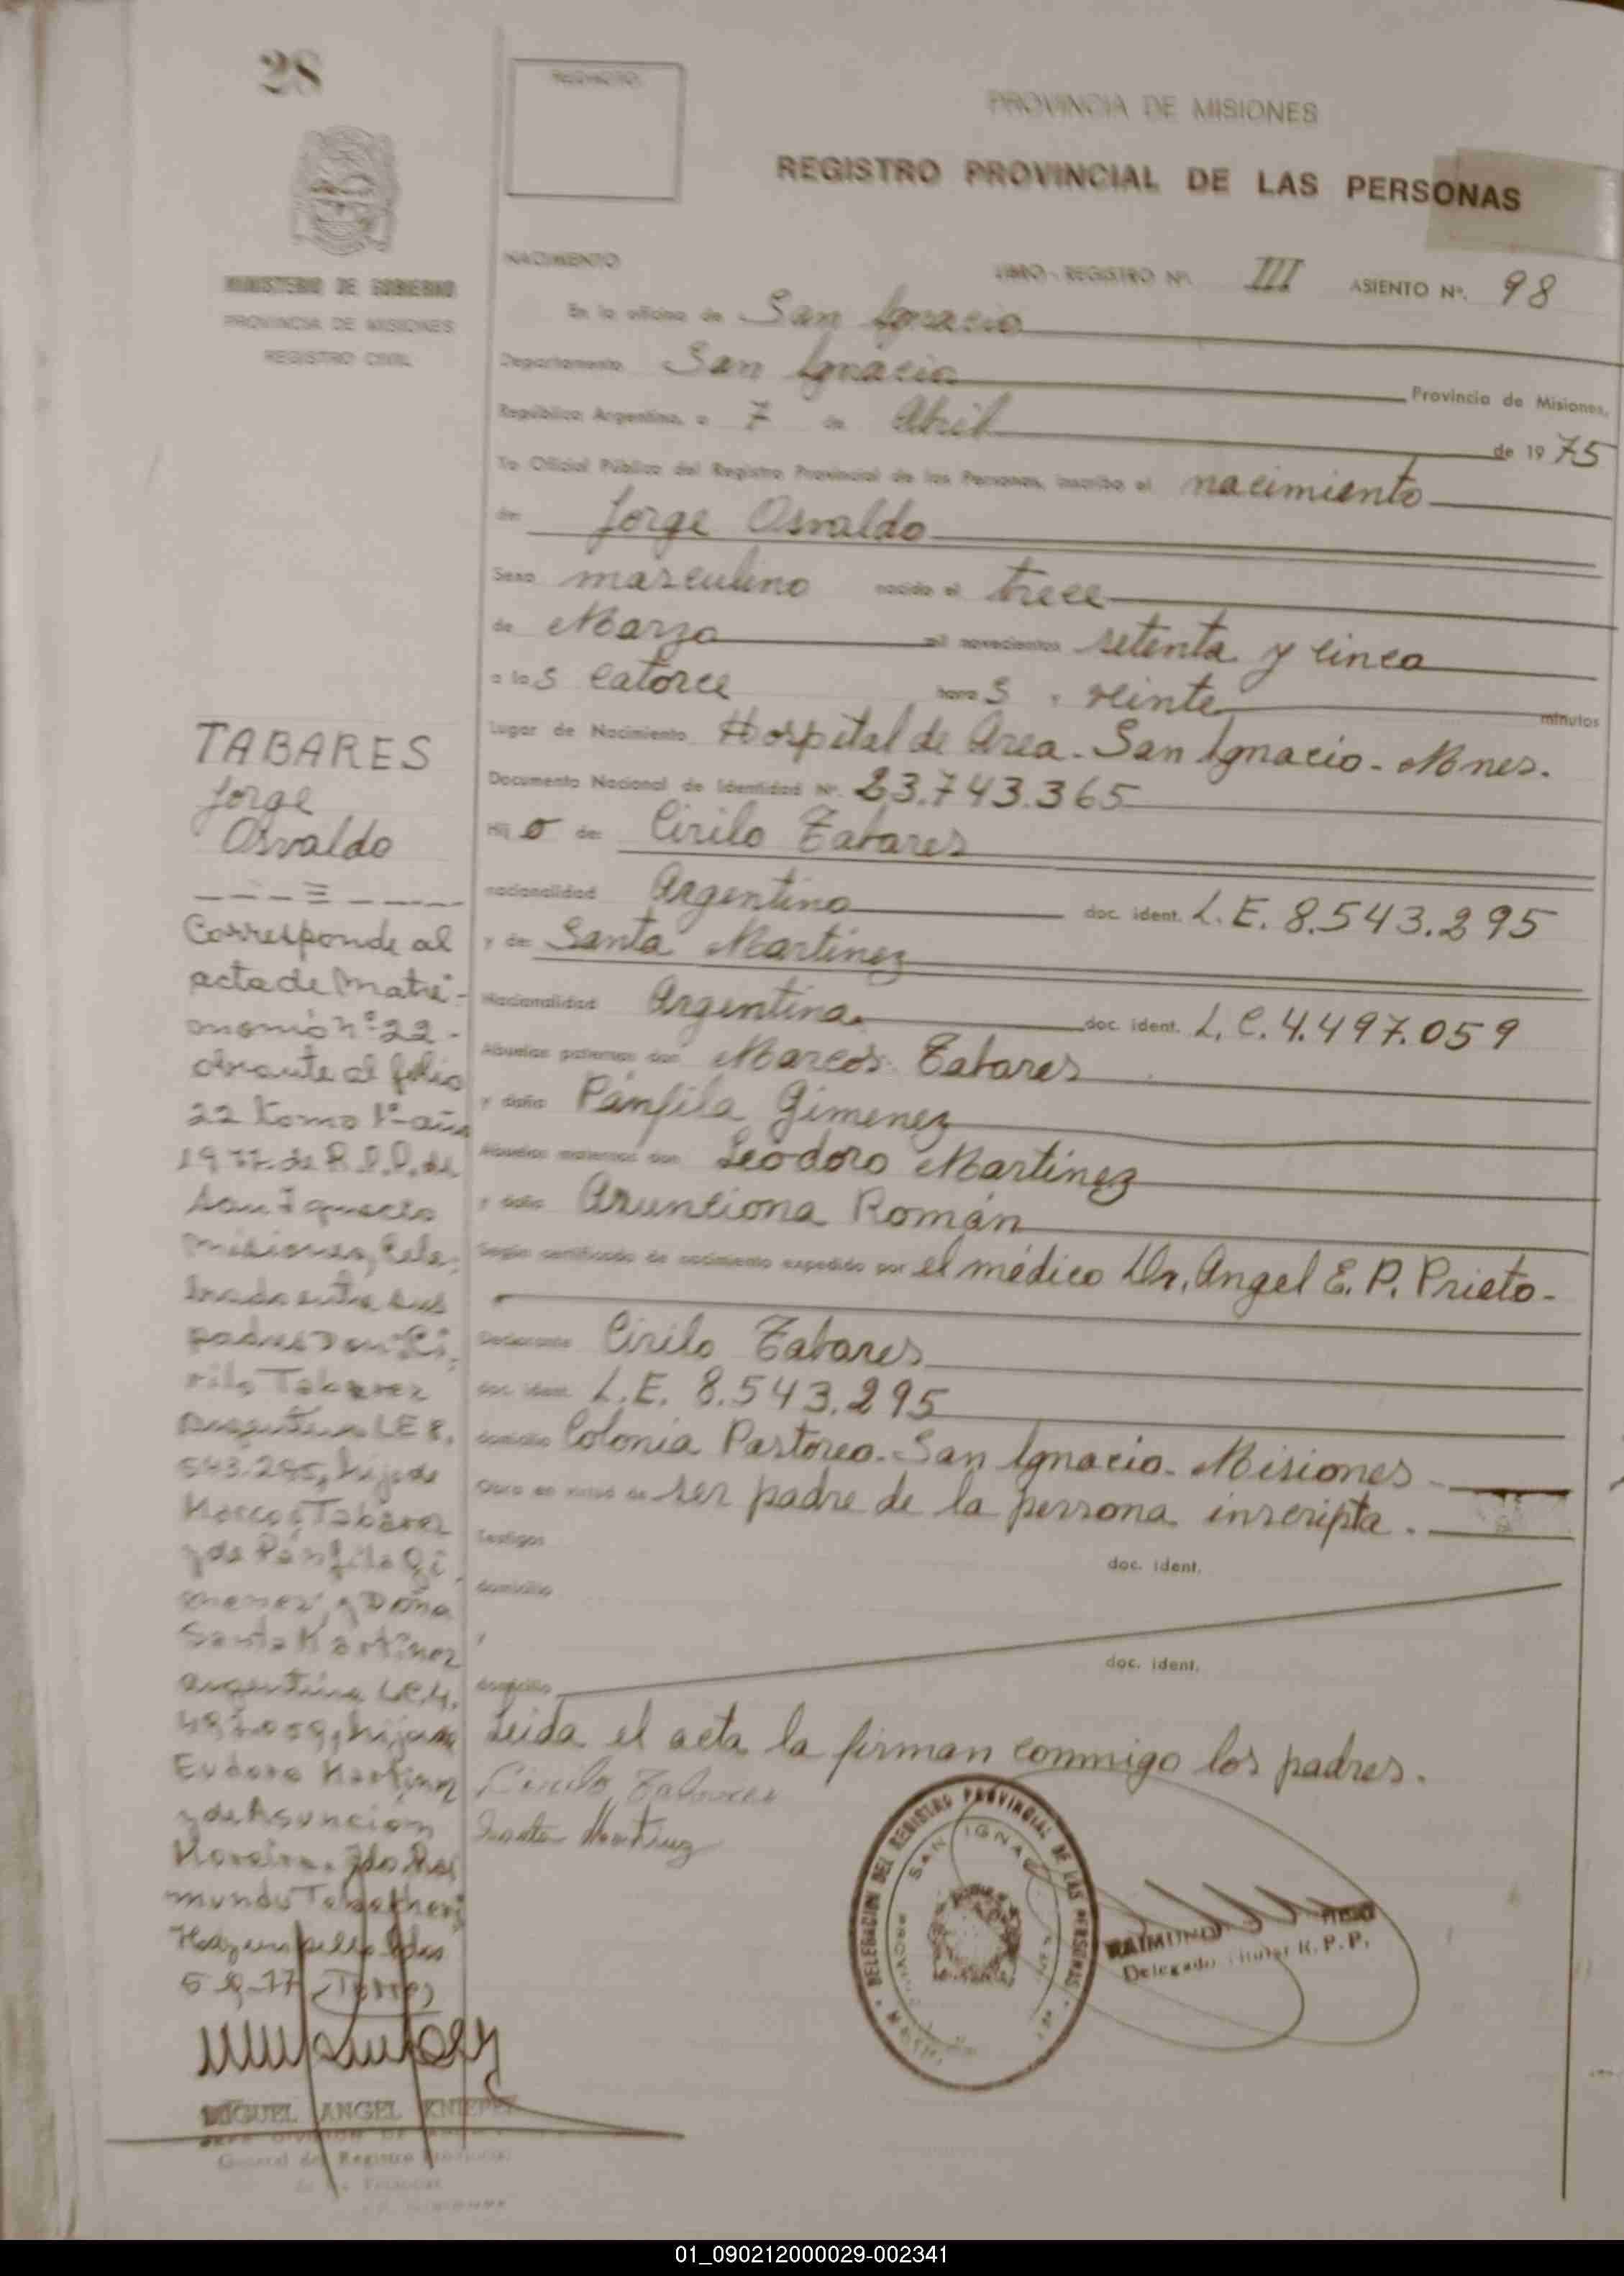 28
RECHAZO
PROVINCIA DE MISIONES
REGISTRO PROVINCIAL DE LAS PERSONAS
MINISTERIO DE GOBIERNO
PROVINCIA DE MISIONES
REGISTRO CIVIL
NACIMIENTO LIBRO - REGISTRO Nº. III ASIENTO Nº. 98
En la oficina de San Ignacio
Departamento San Ignacio Provincia de Misiones,
República Argentina, a 7 de Abril de 1975
Yo Oficial Público del Registro Provincial de las Personas, inscribo el nacimiento
de: Jorge Osvaldo
Sexo masculino nacido el trece
de Marzo mil novecientos setenta y cinco
a las catorce horas y veinte minutos
Lugar de Nacimiento Hospital de Area - San Ignacio - Mnes.
Documento Nacional de Identidad Nº. 23.743.365
Hijo de: Cirilo Tabares
nacionalidad Argentino doc. ident. L.E. 8.543.295
y de: Santa Martinez
Nacionalidad Argentina doc. ident. L.C. 4.497.059
Abuelos paternos don Marcos Tabares
y doña Pánfila Gimenez
Abuelos maternos don Leodoro Martinez
y doña Arunciona Román
Según certificado de nacimiento expedido por el médico Dr. Angel E. P. Prieto-
Declarante Cirilo Tabares
doc. ident. L.E. 8.543.295
domicilio Colonia Pastoreo - San Ignacio - Misiones -
Obra en virtud de ser padre de la persona inscripta.
Testigos doc. ident.
domicilio
y
doc. ident.
domicilio
Leida el acta la firman conmigo los padres.
Cirilo Tabares
Santa Martinez
DELEGACION DEL REGISTRO PROVINCIAL DE LAS PERSONAS
SAN IGNACIO
RAIMUNDO
Delegado Titular R. P. P.
TABARES
Jorge
Osvaldo
Corresponde al
acta de Matri-
monio nº 22-
obrante al folio
22 Tomo 1º año
1977 de R.P.P. de
San Ignacio
Misiones, Cele-
brado entre sus
padres Don Ci-
rilo Tabarez
argentino LE 8.
543.295, hijo de
Marcos Tabarez
y de Pánfila Gi-
menez y Doña
Santa Martinez
argentina LC 4.
497.059, hija de
Eudoro Martinez
y de Asuncion
Moreira. Fdo Rai
mundo
Hay un sello Pdas
5-9-77
MIGUEL ANGEL KNIEPET
JEFE DIVISION DE
General del Registro Provincial
de las Personas
01_090212000029-002341